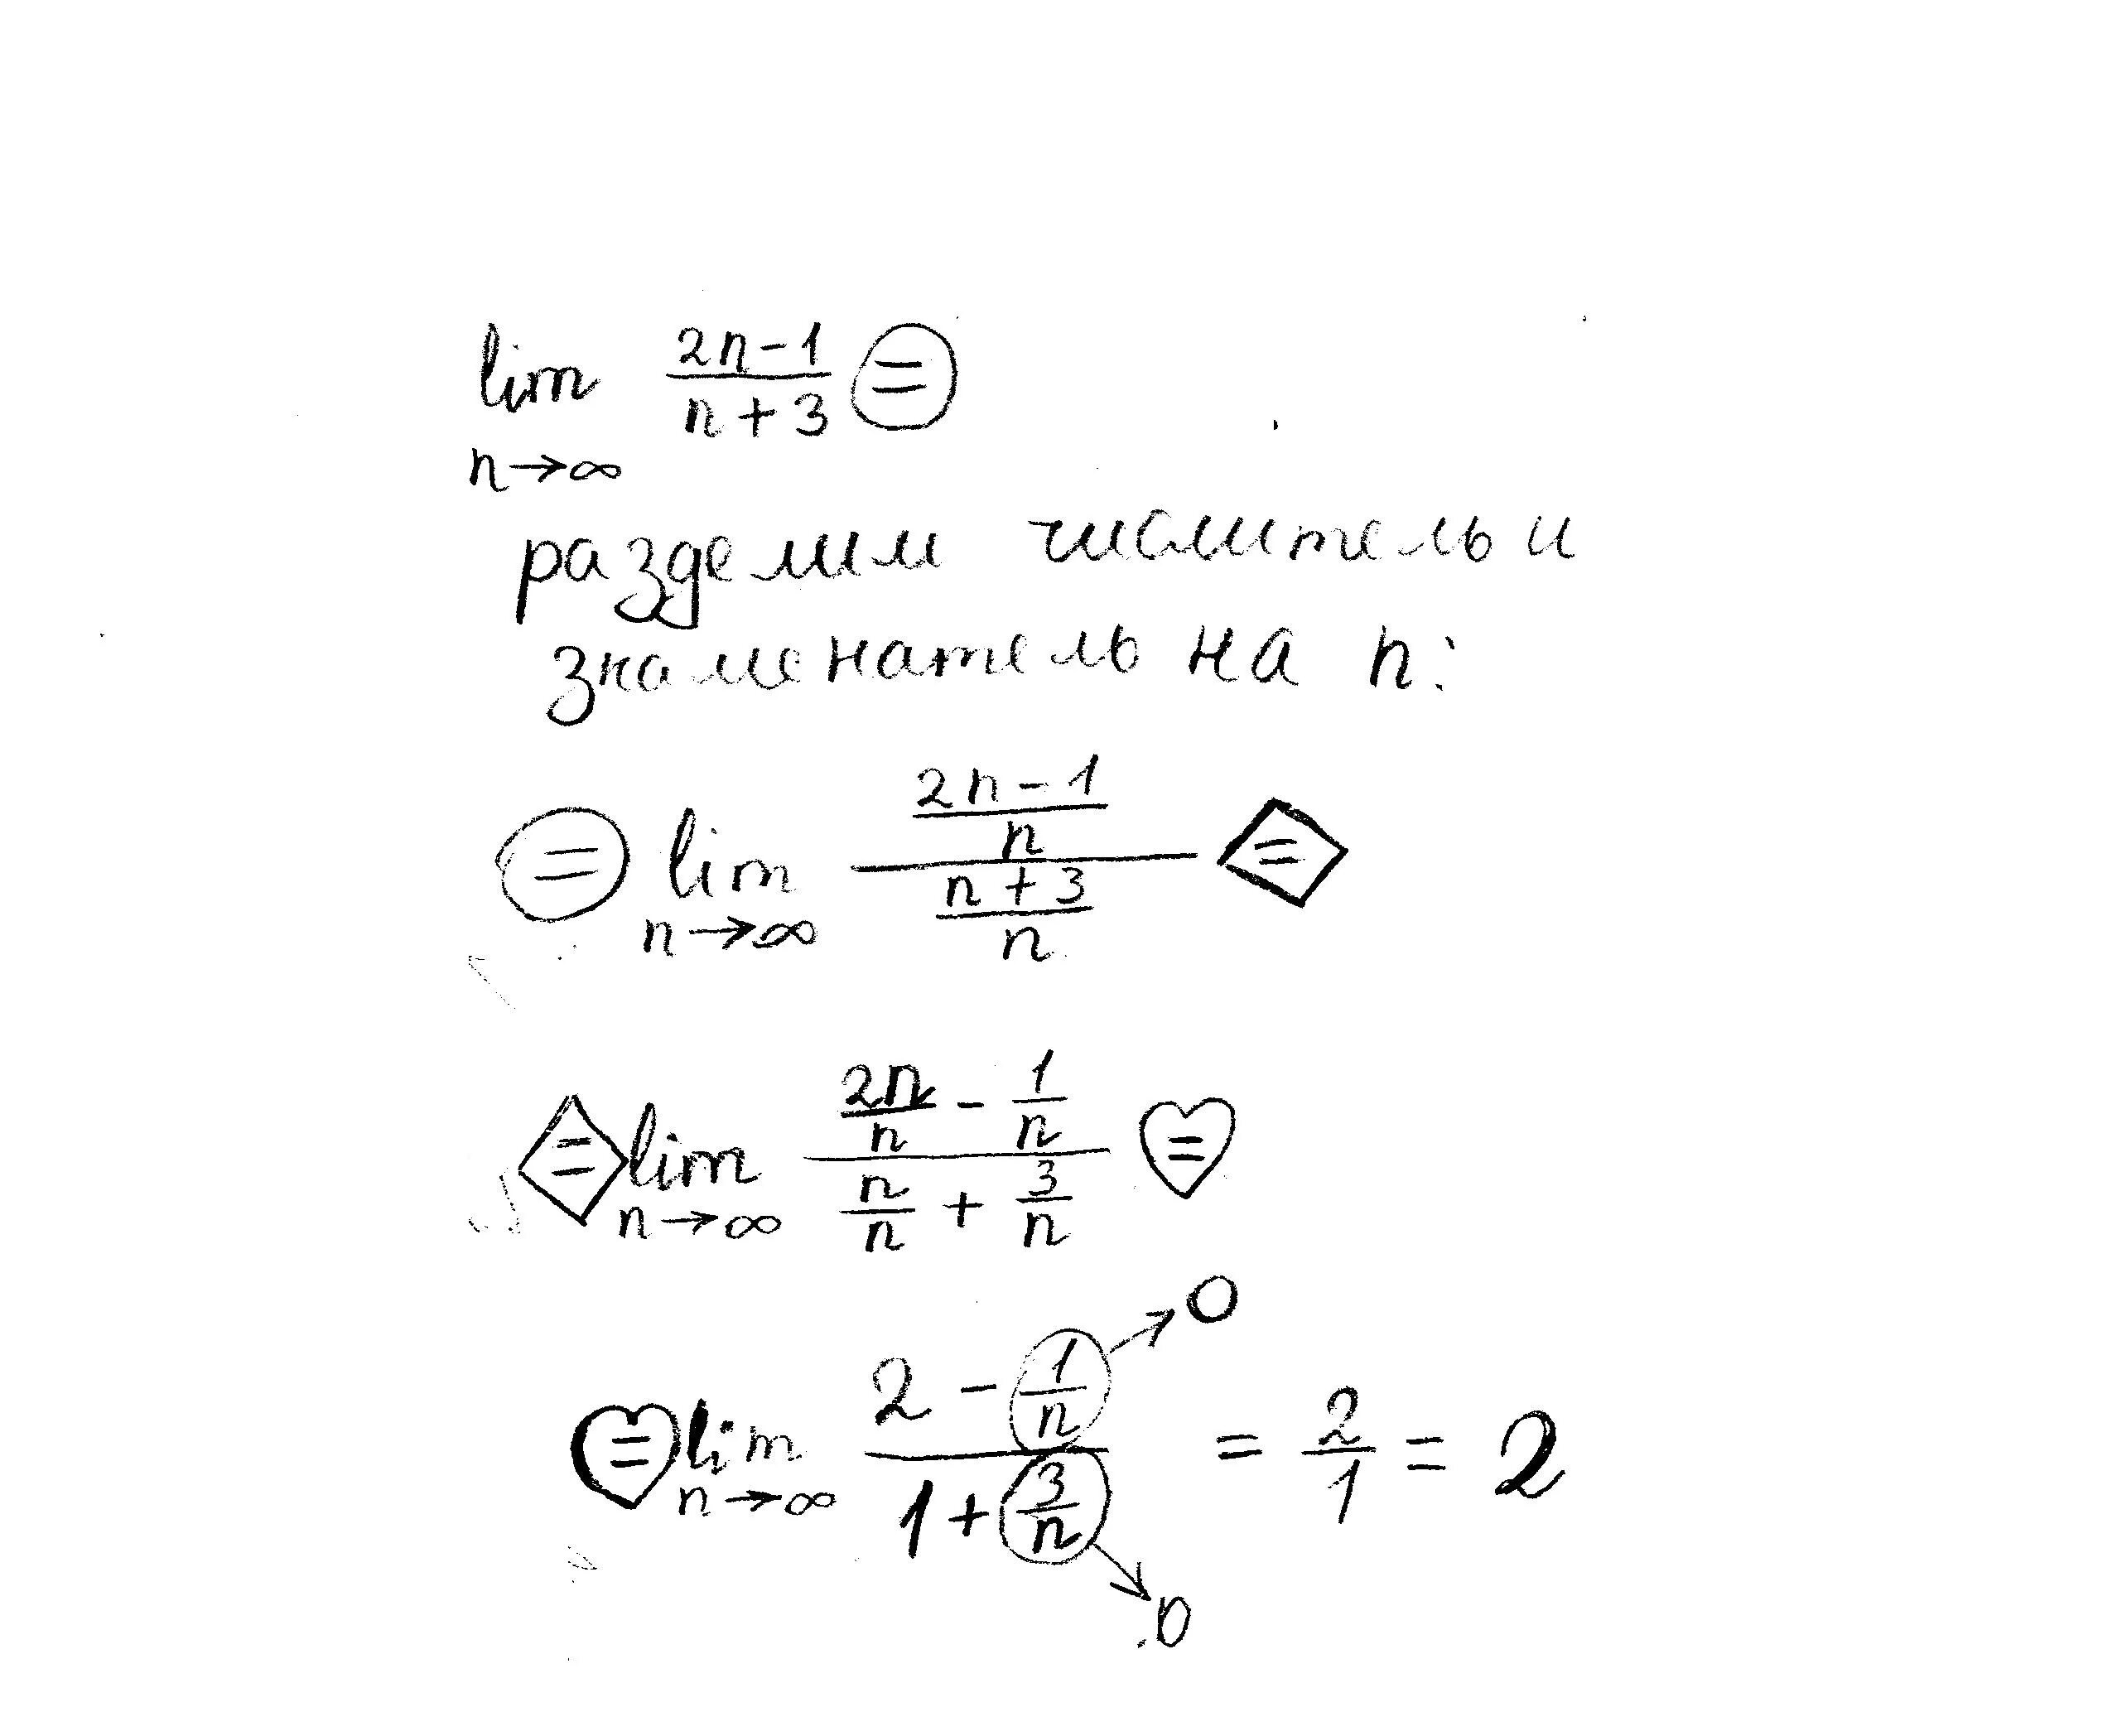 lim n→∞ (2n-1)/(n+3) =
разделим числитель и
знаменатель на n:
= lim n→∞ ((2n-1)/n)/((n+3)/n) =
= lim n→∞ (2n/n - 1/n)/(n/n + 3/n) =
= lim n→∞ (2 - 1/n → 0)/(1 + 3/n → 0) = 2/1 = 2